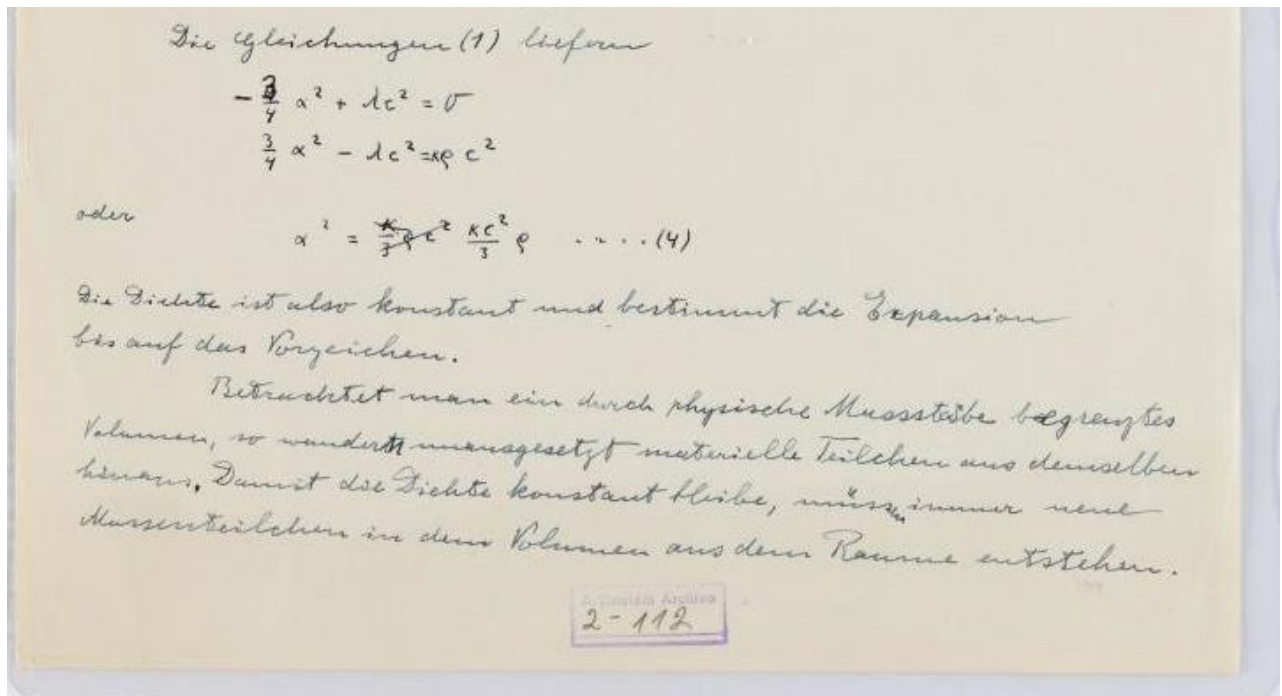 Die Gleichungen (1) liefern
- 3/4 α² + λc² = 0
3/4 α² - λc² = κρc²
oder
α² = κc²/3 ρ ..... (4)
Die Dichte ist also konstant und bestimmt die Expansion
bis auf das Vorzeichen.
Betrachtet man ein durch physische Massstäbe begrenztes
Volumen, so wandern unausgesetzt materielle Teilchen aus demselben
hinaus. Damit die Dichte konstant bleibe, müssen immer neue
Massenteilchen in dem Volumen aus dem Raume entstehen.
Einstein Archive
2-112